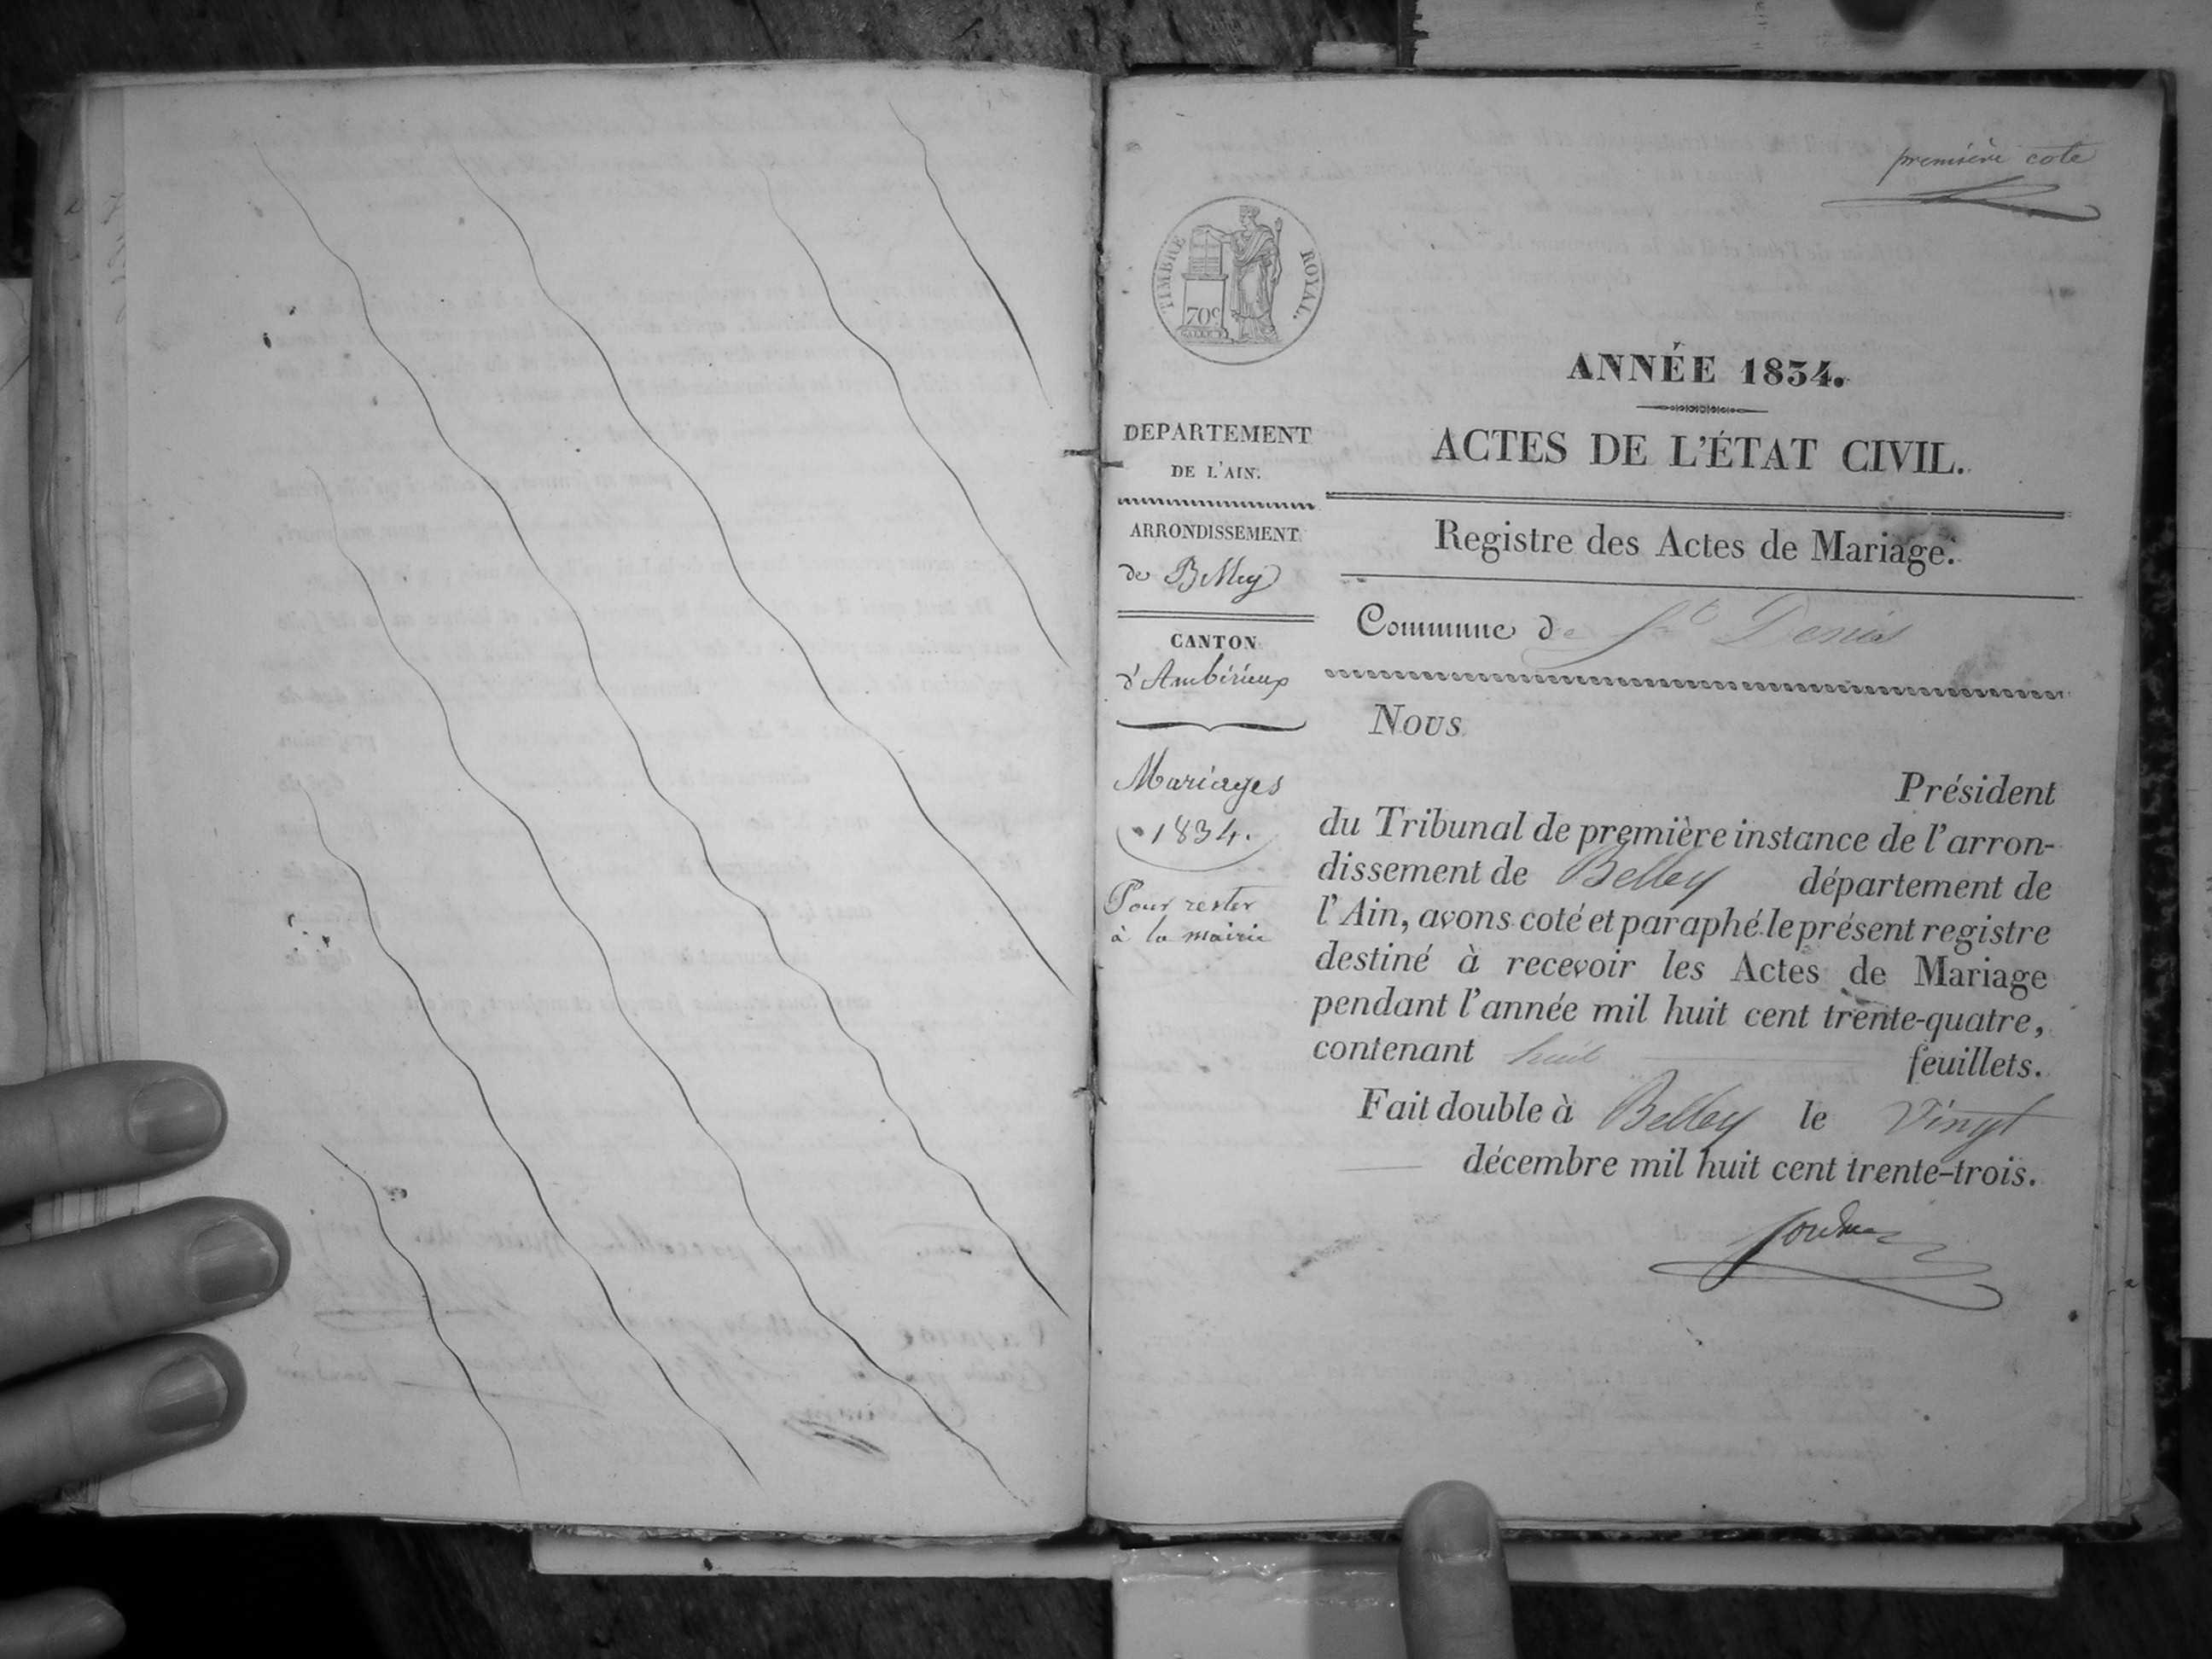 première cote
TIMBRE ROYAL.
70c
ANNÉE 1834.
ACTES DE L'ÉTAT CIVIL.
Registre des Actes de Mariage.
Commune de St Denis
DEPARTEMENT
DE L'AIN.
ARRONDISSEMENT
de Belley
CANTON
d'Ambérieux
Mariages
1834.
Pour rester
à la mairie
Nous
Président
du Tribunal de première instance de l'arron-
dissement de Belley département de
l'Ain, avons coté et paraphé le présent registre
destiné à recevoir les Actes de Mariage
pendant l'année mil huit cent trente-quatre,
contenant huit feuillets.
Fait double à Belley le Vingt
décembre mil huit cent trente-trois.